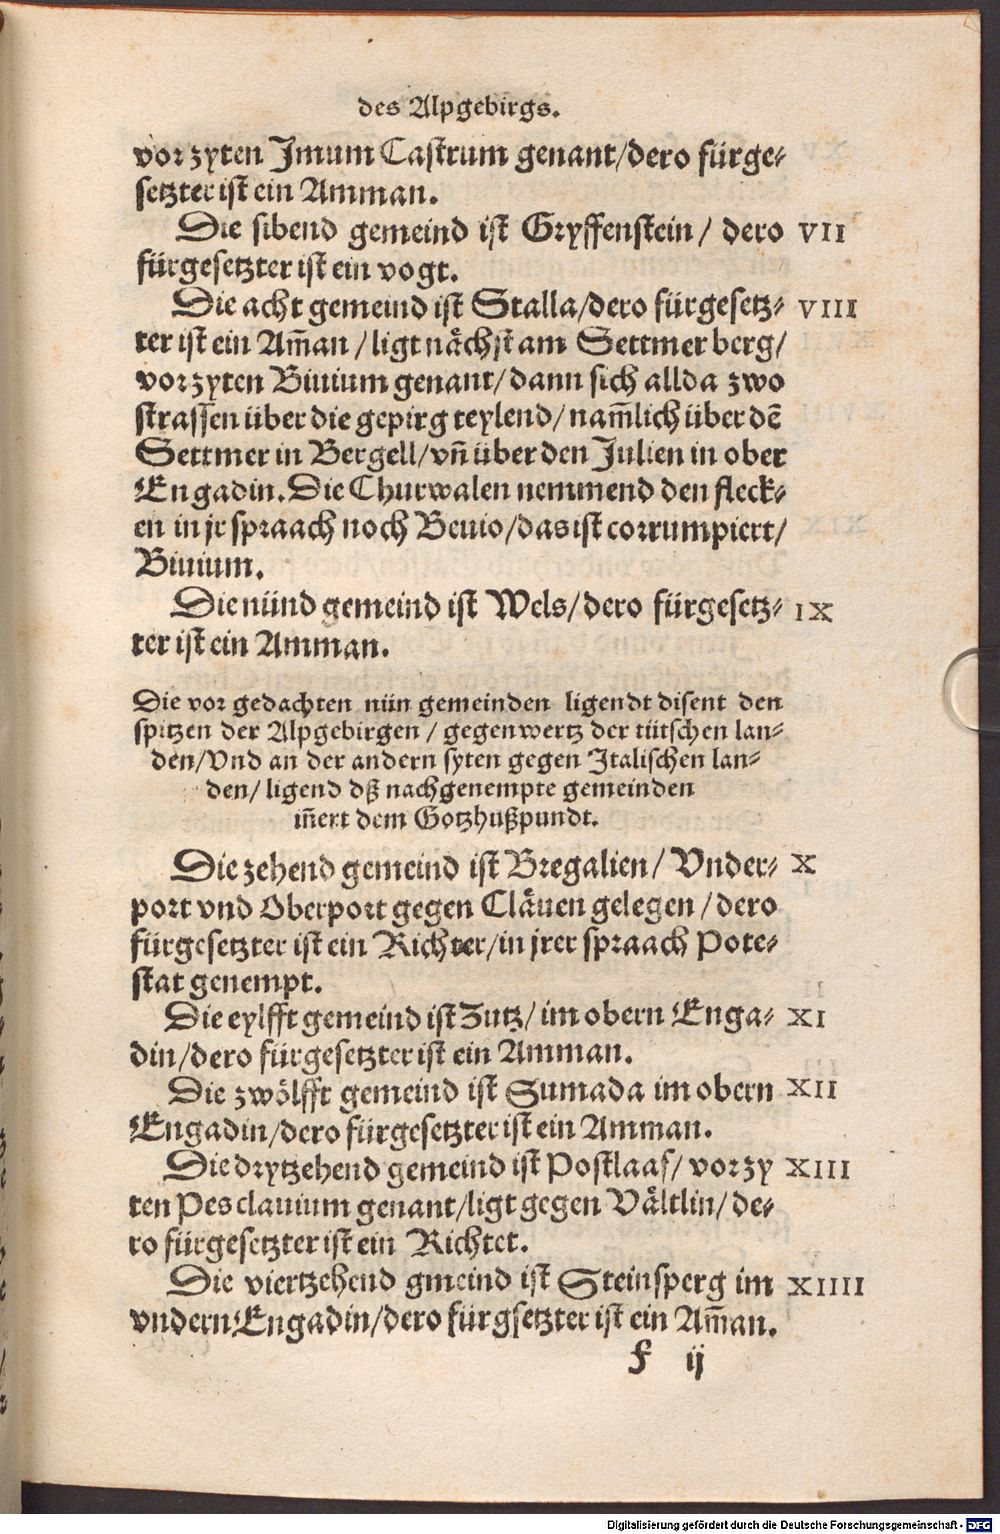 des Alpgebirgs.
vor zyten Imum Castrum genant/dero fürge⸗
setzter ist ein Amman.
Die sibend gemeind ist Gryffenstein/ dero VII
fürgesetzter ist ein vogt.
Die acht gemeind ist Stalla/dero fürgesetz⸗ VIII
ter ist ein Am̃an/ligt nächst am Settmer berg/
vor zyten Biuium genant/dann sich allda zwo
strassen über die gepirg teylend/nam̃lich über dẽ
Settmer in Bergell/vñ über den Julien in ober
Engadin. Die Churwalen nemmend den fleck⸗
en in jr spraach noch Beuio/das ist corrumpiert/
Biuium.
Die nünd gemeind ist Wels/dero fürgesetz⸗ IX
ter ist ein Amman.
Die vor gedachten nün gemeinden ligendt disent den
spitzen der Alpgebirgen/gegenwertz der tütschen lan⸗
den/Vnd an der andern syten gegen Italischen lan⸗
den/ligend dß nachgenempte gemeinden
iñert dem Gotzhußpundt.
Die zehend gemeind ist Bregalien/ Vnder⸗ X
port vnd Oberport gegen Cläuen gelegen/dero
fürgesetzter ist ein Richter/in jrer spraach Pote⸗
stat genempt.
Die eylfft gemeind ist Zutz/im obern Enga⸗ XI
din/dero fürgesetzter ist ein Amman.
Die zwölfft gemeind ist Sumada im obern XII
Engadin/dero fürgesetzter ist ein Amman.
Die drytzehend gemeind ist Postlaaf/ vor zy XIII
ten Pesclauium genant/ligt gegen Vältlin/de⸗
ro fürgesetzter ist ein Richtet.
Die viertzehend gmeind ist Steinsperg im XIIII
vndern Engadin/dero fürgsetzter ist ein Am̃an.
F ij
Digitalisierung gefördert durch die Deutsche Forschungsgemeinschaft - DFG